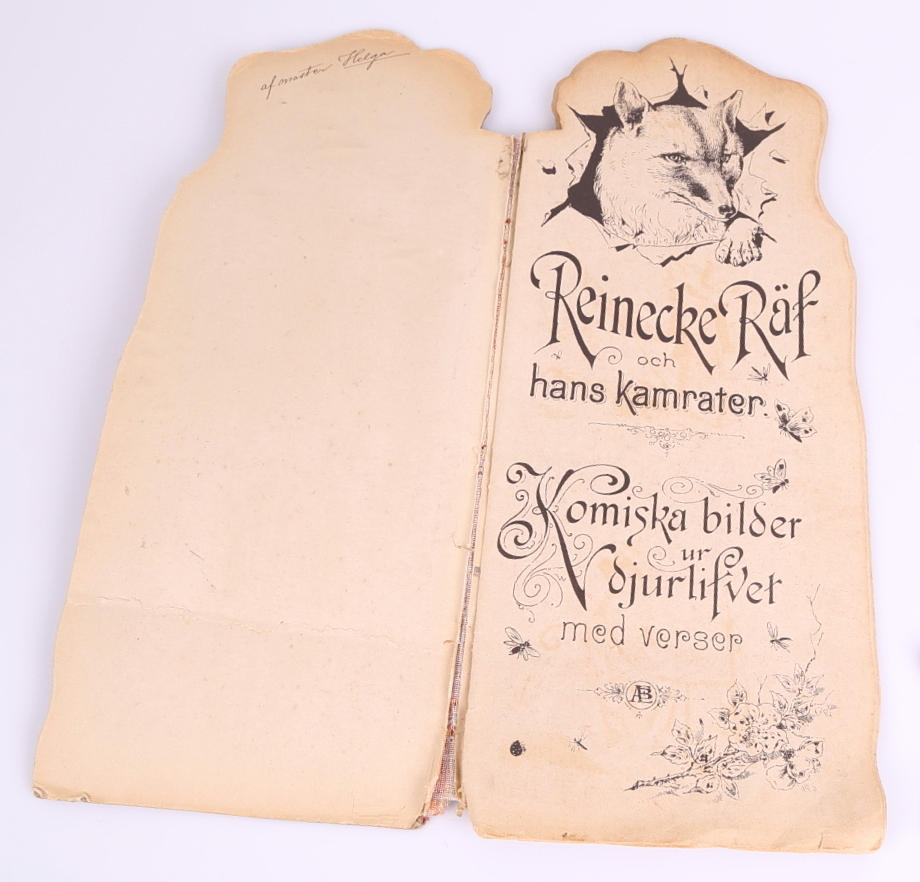 af moster Helga
Reinecke Räf
och
hans kamrater.
Komiska bilder
ur
djurlifvet
med verser
AB